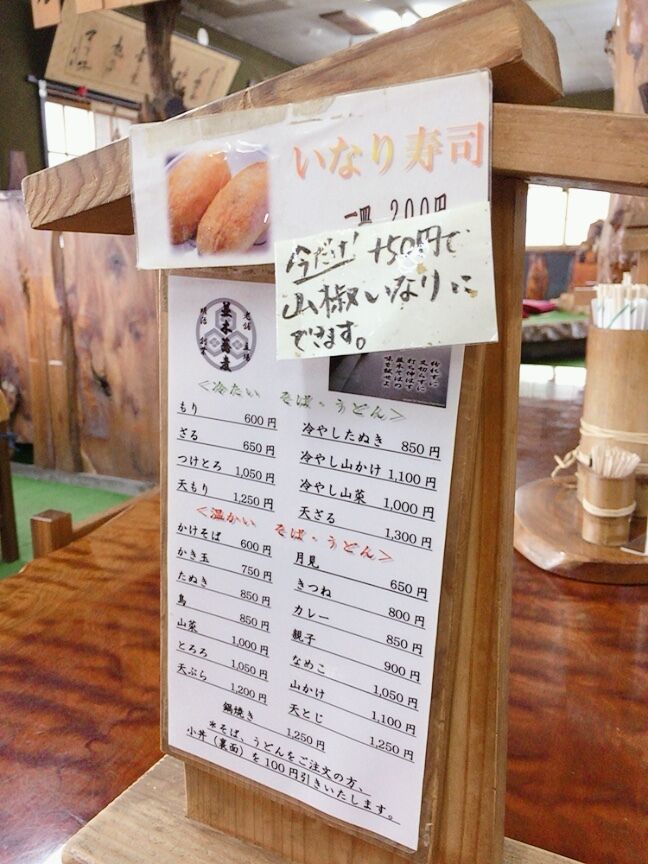 いなり寿司
一皿 200円
今だけ! +50円で
山椒いなりに
できます。
並木蕎麦
老舗
直陽
明治
創業
<冷たい そば・うどん>
もり 600円
ざる 650円
つけとろ 1,050円
天もり 1,250円
冷やしたぬき 850円
冷やし山かけ 1,100円
冷やし山菜 1,000円
天ざる 1,300円
<温かい そば・うどん>
かけそば 600円
かき玉 750円
たぬき 850円
鳥 850円
山菜 1,000円
とろろ 1,050円
天ぷら 1,200円
月見 650円
きつね 800円
カレー 850円
親子 900円
なめこ 1,050円
山かけ 1,100円
天とじ 1,250円
鍋焼き 1,250円
*そば、うどんをご注文の方、
小丼(裏面)を100円引きいたします。